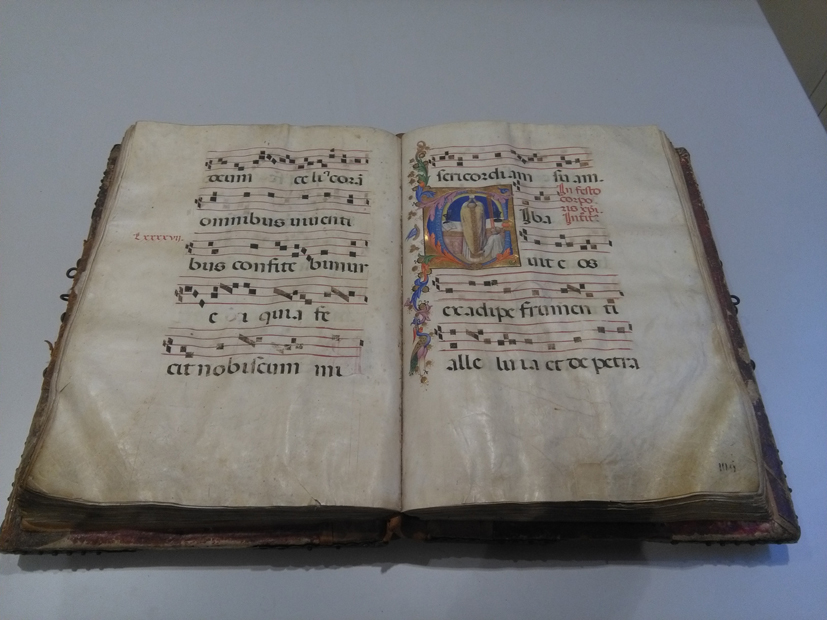 deum celi corā
omnibus uiuenti
lxxxxvii.
bus confite bimur
e i quia fe
cit nobiscum mi
sericordiam suam.
In festo
corpo
ris xpi.
Iba
uit e os
ex adipe frumen ti
alle luia et de petra